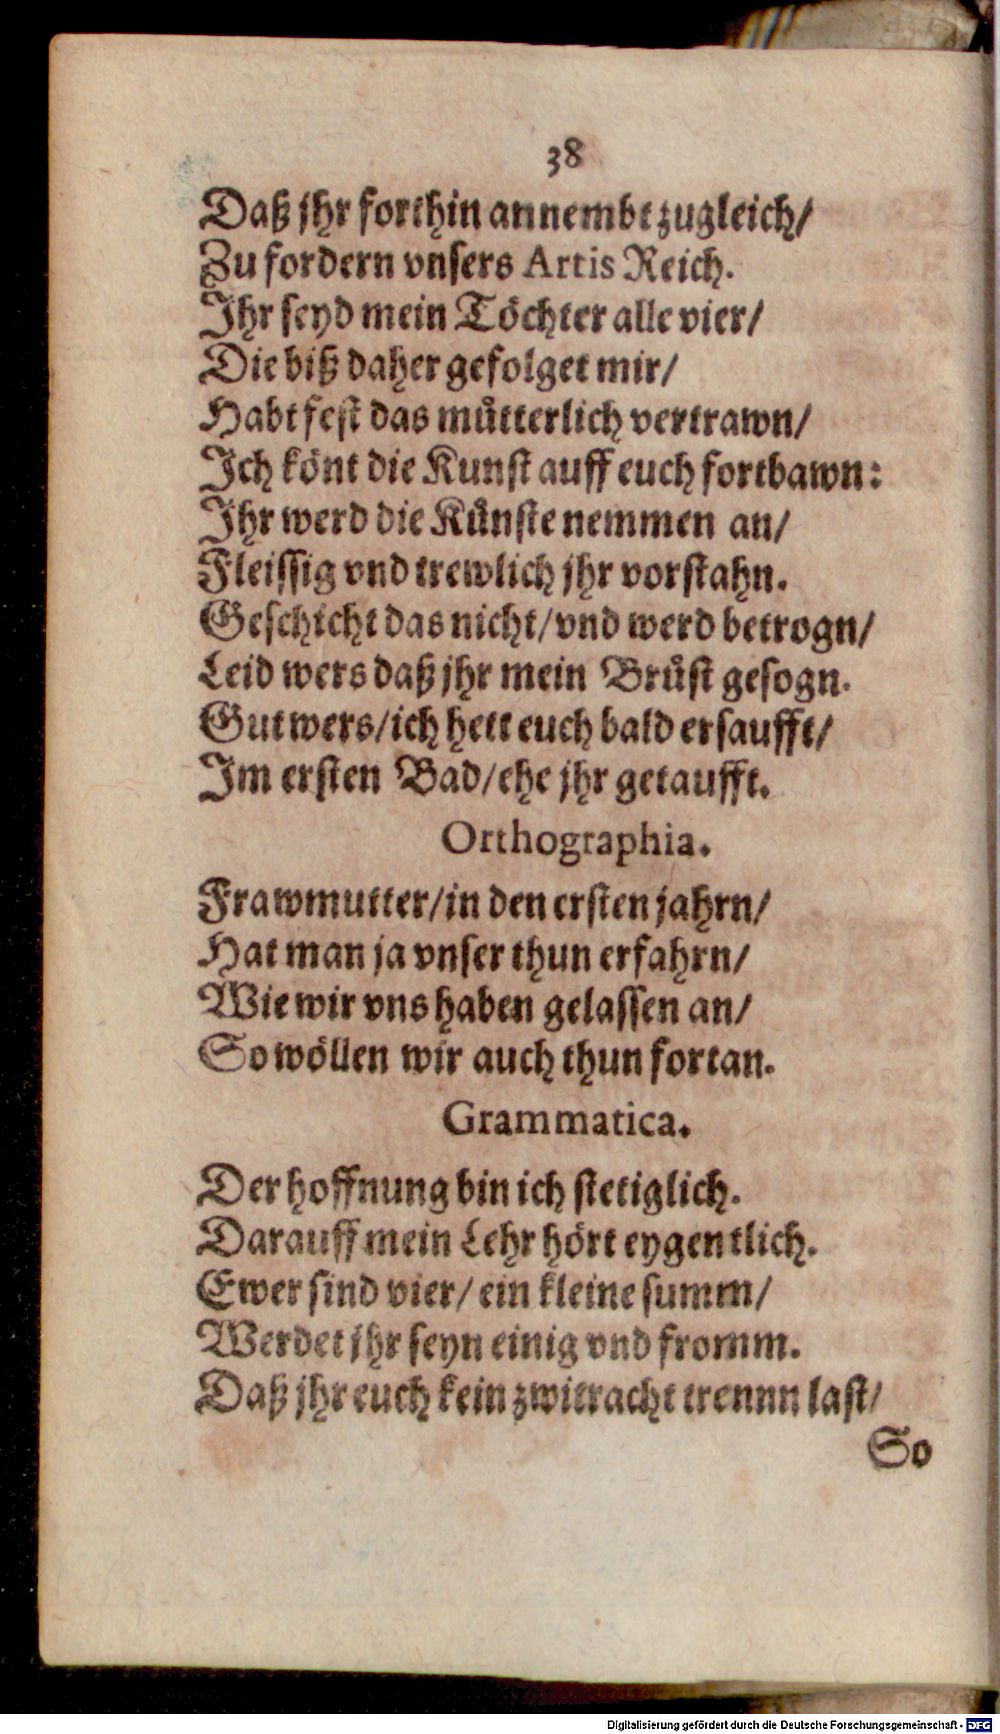 38
Daß jhr forthin annembt zugleich/
Zu fordern vnsers Artis Reich.
Ihr seyd mein Töchter alle vier/
Die biß daher gefolget mir/
Habt fest das mütterlich vertrawn/
Ich könt die Kunst auff euch fortbawn:
Ihr werd die Künste nemmen an/
Fleissig vnd trewlich jhr vorstahn.
Geschicht das nicht/vnd werd betrogn/
Leid wers daß jhr mein Brüst gesogn.
Gut wers/ich hett euch bald ersaufft/
Im ersten Bad/ehe jhr getaufft.
Orthographia.
Frawmutter/in den ersten jahrn/
Hat man ja vnser thun erfahrn/
Wie wir vns haben gelassen an/
So wöllen wir auch thun fortan.
Grammatica.
Der hoffnung bin ich stetiglich.
Darauff mein Lehr hört eygentlich.
Ewer sind vier/ ein kleine summ/
Werdet jhr seyn einig vnd fromm.
Daß jhr euch kein zwitracht trennn last/
So
Digitalisierung gefördert durch die Deutsche Forschungsgemeinschaft - DFG